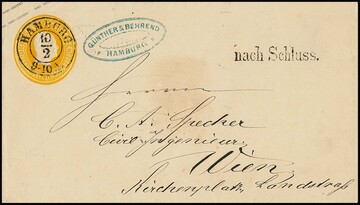 HAMBURG
10
2
9-10
GÜNTHER & BEHREND
HAMBURG
nach Schluss.
Herrn
C. A. Specker
Civil-Ingenieur
Wien
Kirchenplatz, Landstraße